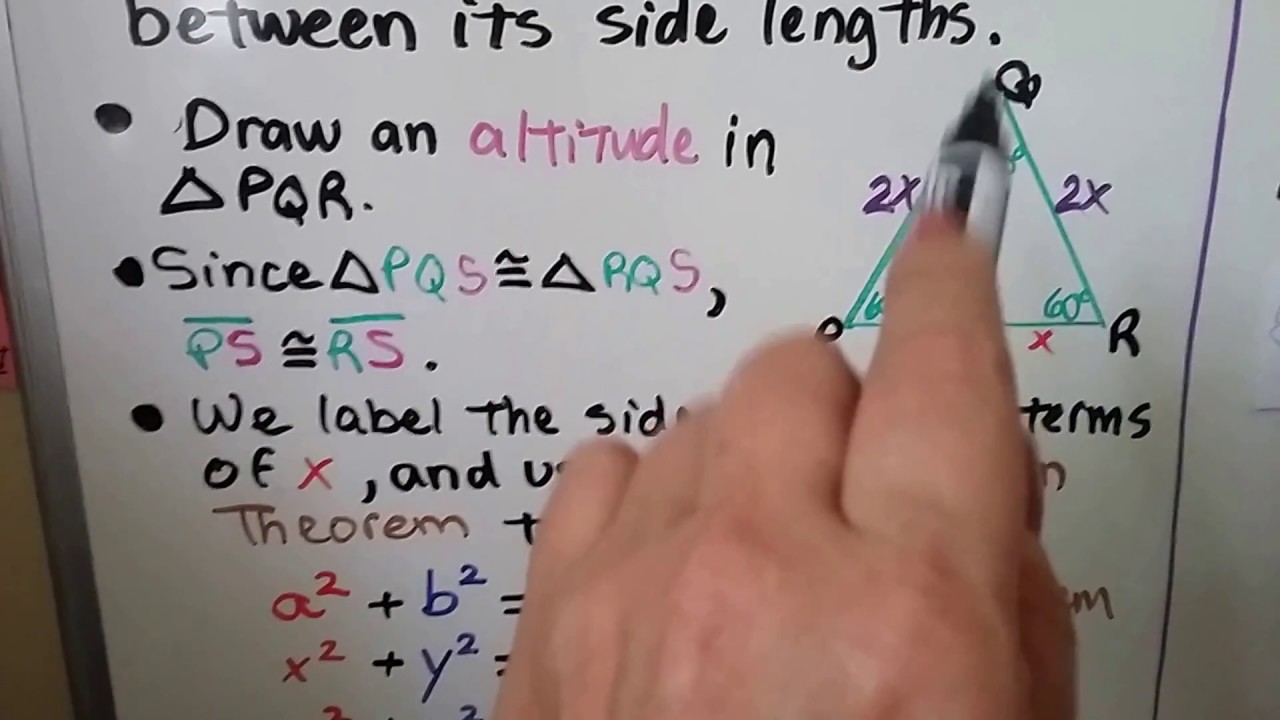 between its side lengths.
• Draw an altitude in
△PQR.
• Since △PQS ≅ △RQS,
PS ≅ RS.
• We label the terms
of x, and
Theorem
a² + b² =
x² + y² =
Q
2x 2x
60°
P x R